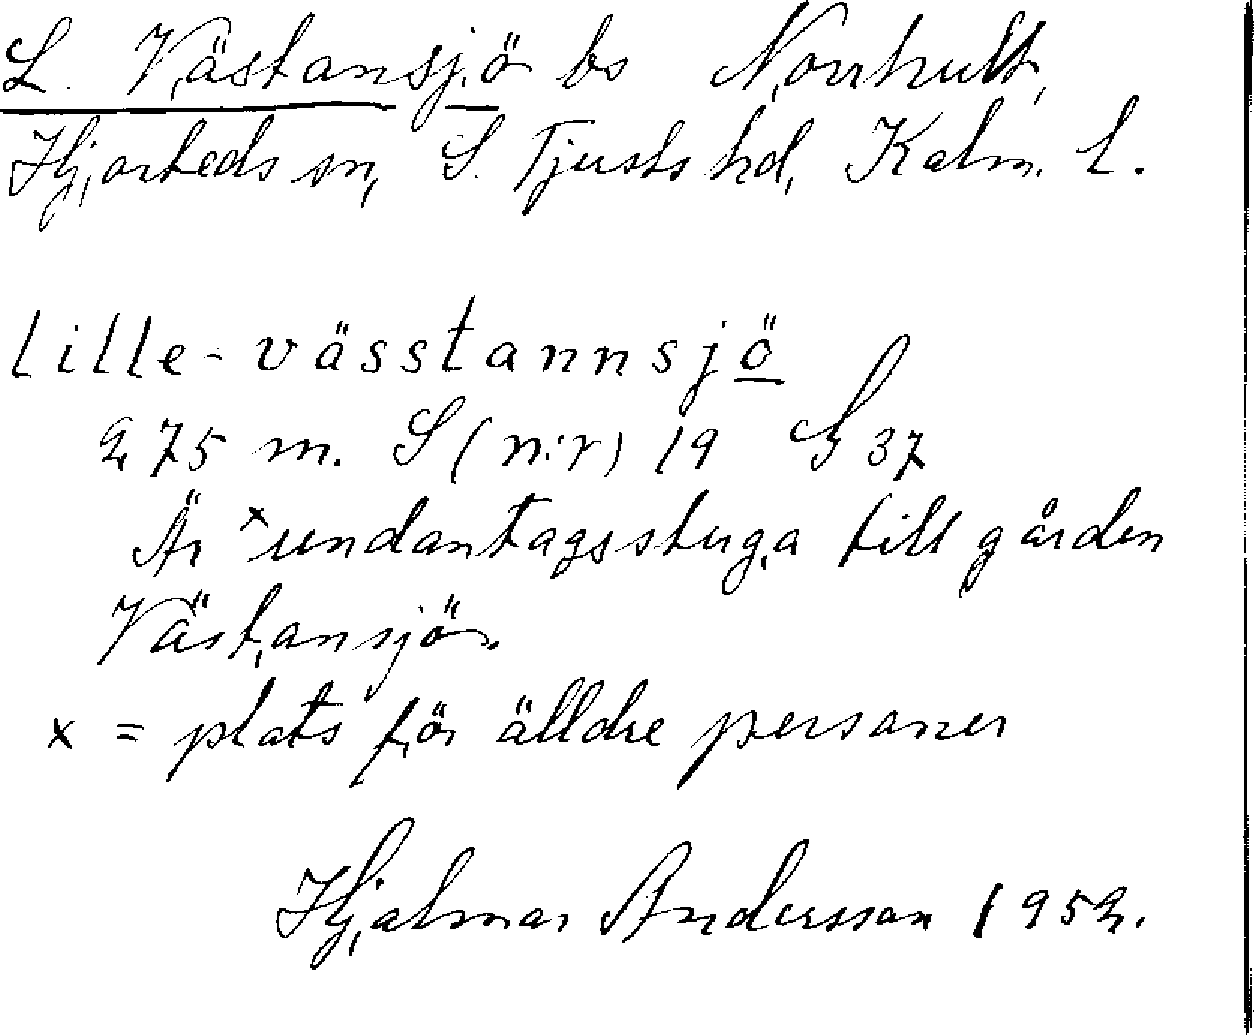 L. Västansjö bs Norrhult,
Hjorteds sn, S. Tjusts hd, Kalm. l.
lille-vässtannsjö
275 m. S (n:r) 19 G 37
Är ˣundantagsstuga till gården
Västansjö.
x = plats för älldre personer
Hjalmar Andersson 1952.